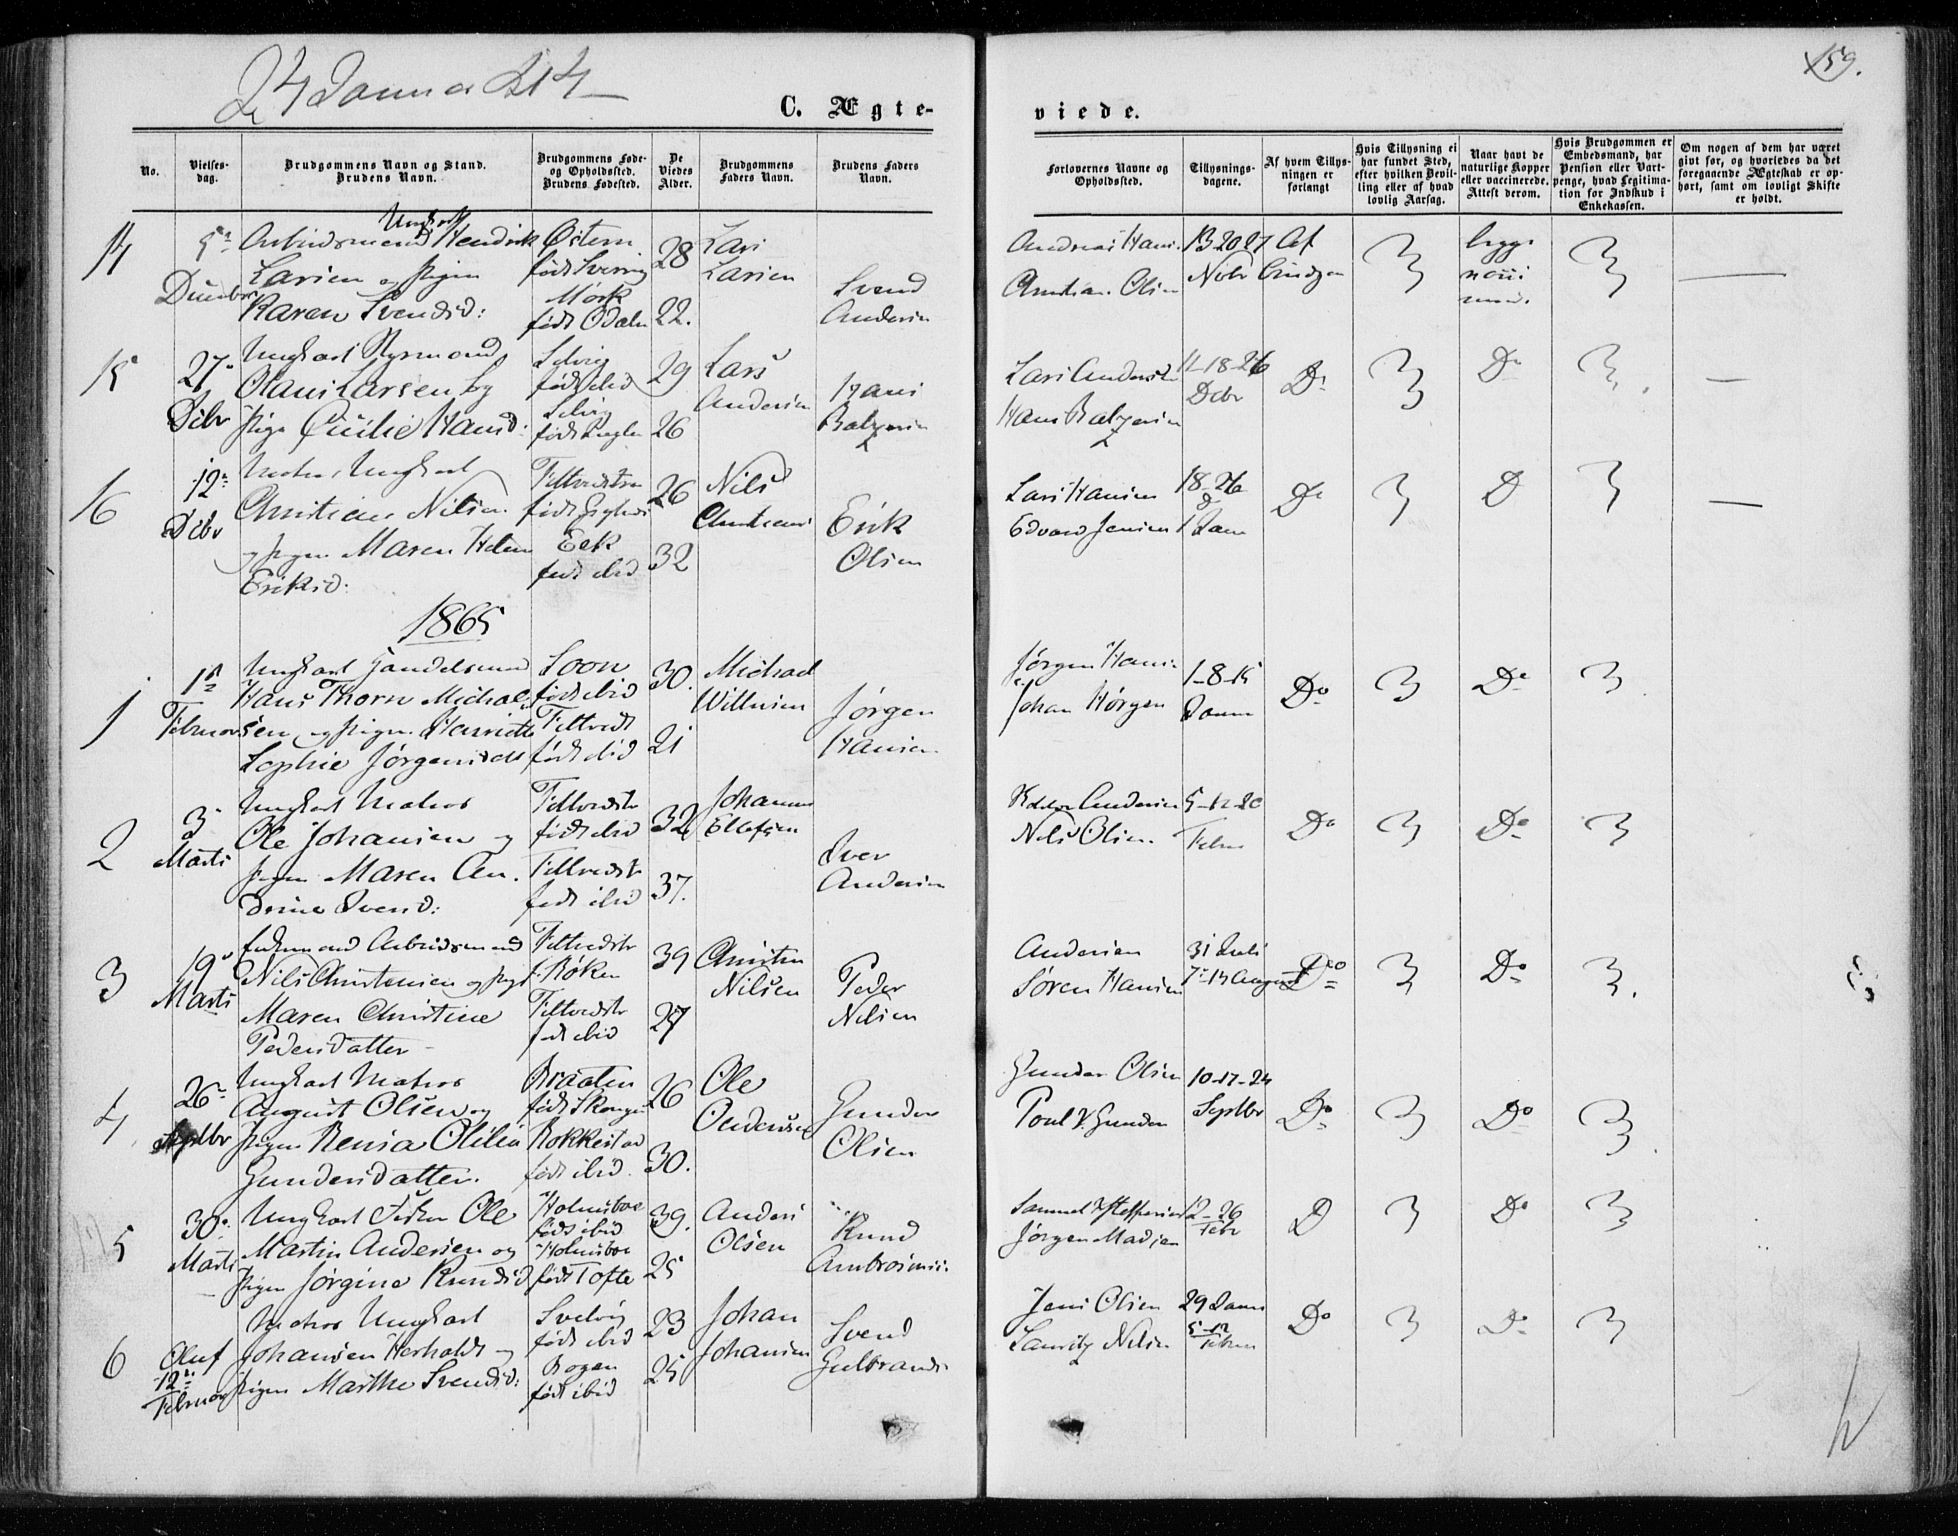 159.
C. Ægte-
viede.
No.
Vielses-
dag.
Brudgommens Navn og Stand.
Brudens Navn.
Brudgommens Føde-
og Opholdssted.
Brudens Fødested.
De
Viedes
Alder.
Brudgommens
Faders Navn.
Brudens Faders
Navn.
Forlovernes Navne og
Opholdssted.
Tillysnings-
dagene.
Af hvem Tillys-
ningen er
forlangt
Hvis Tillysning ei
har fundet Sted,
efter hvilken Bevil-
ling eller af hvad
lovlig Aarsag.
Naar havt de
naturlige Kopper
eller vaccinerede.
Attest derom.
Hvis Brudgommen er
Embedsmand, har
Pension eller Vart-
penge, hvad Legitima-
tion for Indskud i
Enkekassen.
Om nogen af dem har været
givt før, og hvorledes da det
foregaaende Ægteskab er op-
hørt, samt om lovligt Skifte
er holdt.
14
Ungkarl
Arbeidsmand Hendrik
Larsen og Pigen
Karen Svendsd:
født Sverrig
født Odalen
28
22.
Lars
Larsen
Svend
Andersen
Andreas Hans.
Christian Olsen
13 20 27
Novbr
Af
15
27
Dcbr
Ungkarl Styrmand
Olaus Larsen by
Pige Cecilie Hansd:
Selvig
født ibid
Selvig
29
26
Lars
Andersen
Hans
Balzersen
Lars Andersen
Hans Balzersen
11-18-26
Dcbr
Do
Do
16
12
Dcbr
Matros Ungkarl
Christian Nilsen
og Pigen Maren Helene
Eriksd:
Filtvedtstr
Eek
født ibid
26
32
Nils
Christians
Erik
Olsen
Lars Hansen
Edvard Jensen
18-26
1 Janu
Do
D
1865
1
1
Februar
Ungkarl Handelsmand
Hans Thorn Michael
sen og Pigen Henriette
Sophie Jørgensdatt
Soon
født ibid
Filtvedt
født ibid
30.
21
Michael
Willumsen
Jørgen
Hansen
Jørgen Hans
Johan Hørgen
1-8-15
Janu
Do
Do
2
3
Marts
Ungkarl Matros
Ole Johansen og
Pigen Maren An.
drine Iversd:
Filtvedtstr
født ibid
Filtvedtstr
født ibid
32
37.
Johannes
Ellefsen
Iver
Andersen
Andersen
Nils Olsen.
5-12-20
Febru
Do
Do
3
19
Marts
Enkemand Arbeidsmand
Nils Christensen og Pige
Maren Christine
Pedersdatter
Filtvedtstr
f. Røken
Filtvedtstr
født ibid
39
27
Christen
Nilsen
Peder
Nilsen
Andersen
Søren Hansen
31 Juli
7-14 August
Do
Do
4
26
Septbr
Ungkarl Matros
August Olsen og
Pigen Rensa Olilia
Gundersdatter.
Braaten
Rokkestad
født ibid.
26
30.
Ole
Gunder
Olsen
Gunder Olsen
Poul Gunder
10-17-24
Septbr
Do
Do
5
30
Marts
Ungkarl Fisker Ole
Martin Andersen og
Pigen Jørgine Knudsd
Holmsboe
født ibid
Holmsboe
født Tofte
39.
25
Anders
Olsen
Knud
Ambrosius
Samuel Steffensen
Jørgen Madsen
12-26
Febr
D
Do
6
12
Februar
Matros Ungkarl
Oluf Johansen Herholdt og
Pigen Marthe Svendsd:
Svelvig
født ibid
Bogen
født ibid
23
25
Johan
Johansen
Svend
Gulbrands
Jens Olsen
Lauritz Nilsen
29 Janu
5-12
Febru
Do
Do